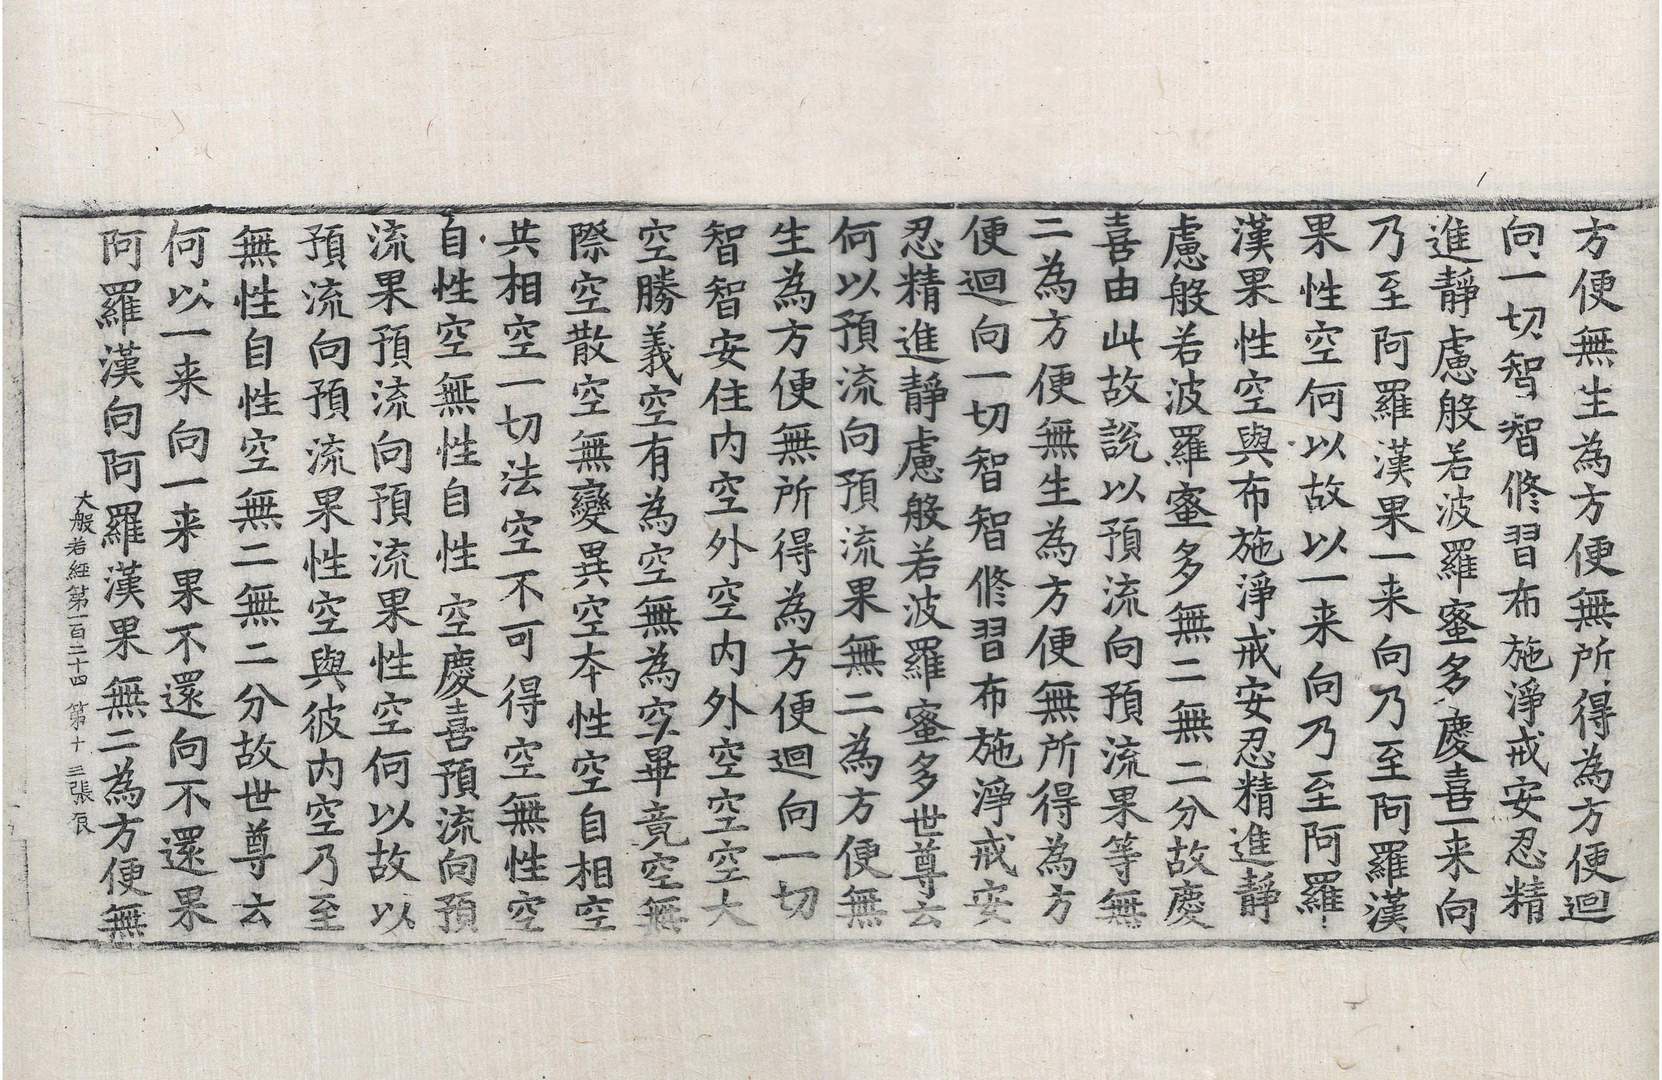 方便無生為方便無所得為方便迴
向一切智智修習布施淨戒安忍精
進靜慮般若波羅蜜多慶喜一来向
乃至阿羅漢果一来向乃至阿羅漢
果性空何以故以一来向乃至阿羅
漢果性空與布施淨戒安忍精進靜
慮般若波羅蜜多無二無二分故慶
喜由此故說以預流向預流果等無
二為方便無生為方便無所得為方
便迴向一切智智修習布施淨戒安
忍精進靜慮般若波羅蜜多世尊云
何以預流向預流果無二為方便無
生為方便無所得為方便迴向一切
智智安住内空外空内外空空空大
空勝義空有為空無為空畢竟空無
際空散空無變異空本性空自相空
共相空一切法空不可得空無性空
自性空無性自性空慶喜預流向預
流果預流向預流果性空何以故以
預流向預流果性空與彼内空乃至
無性自性空無二無二分故世尊云
何以一来向一来果不還向不還果
阿羅漢向阿羅漢果無二為方便無
大般若經第一百二十四 第十三張 辰